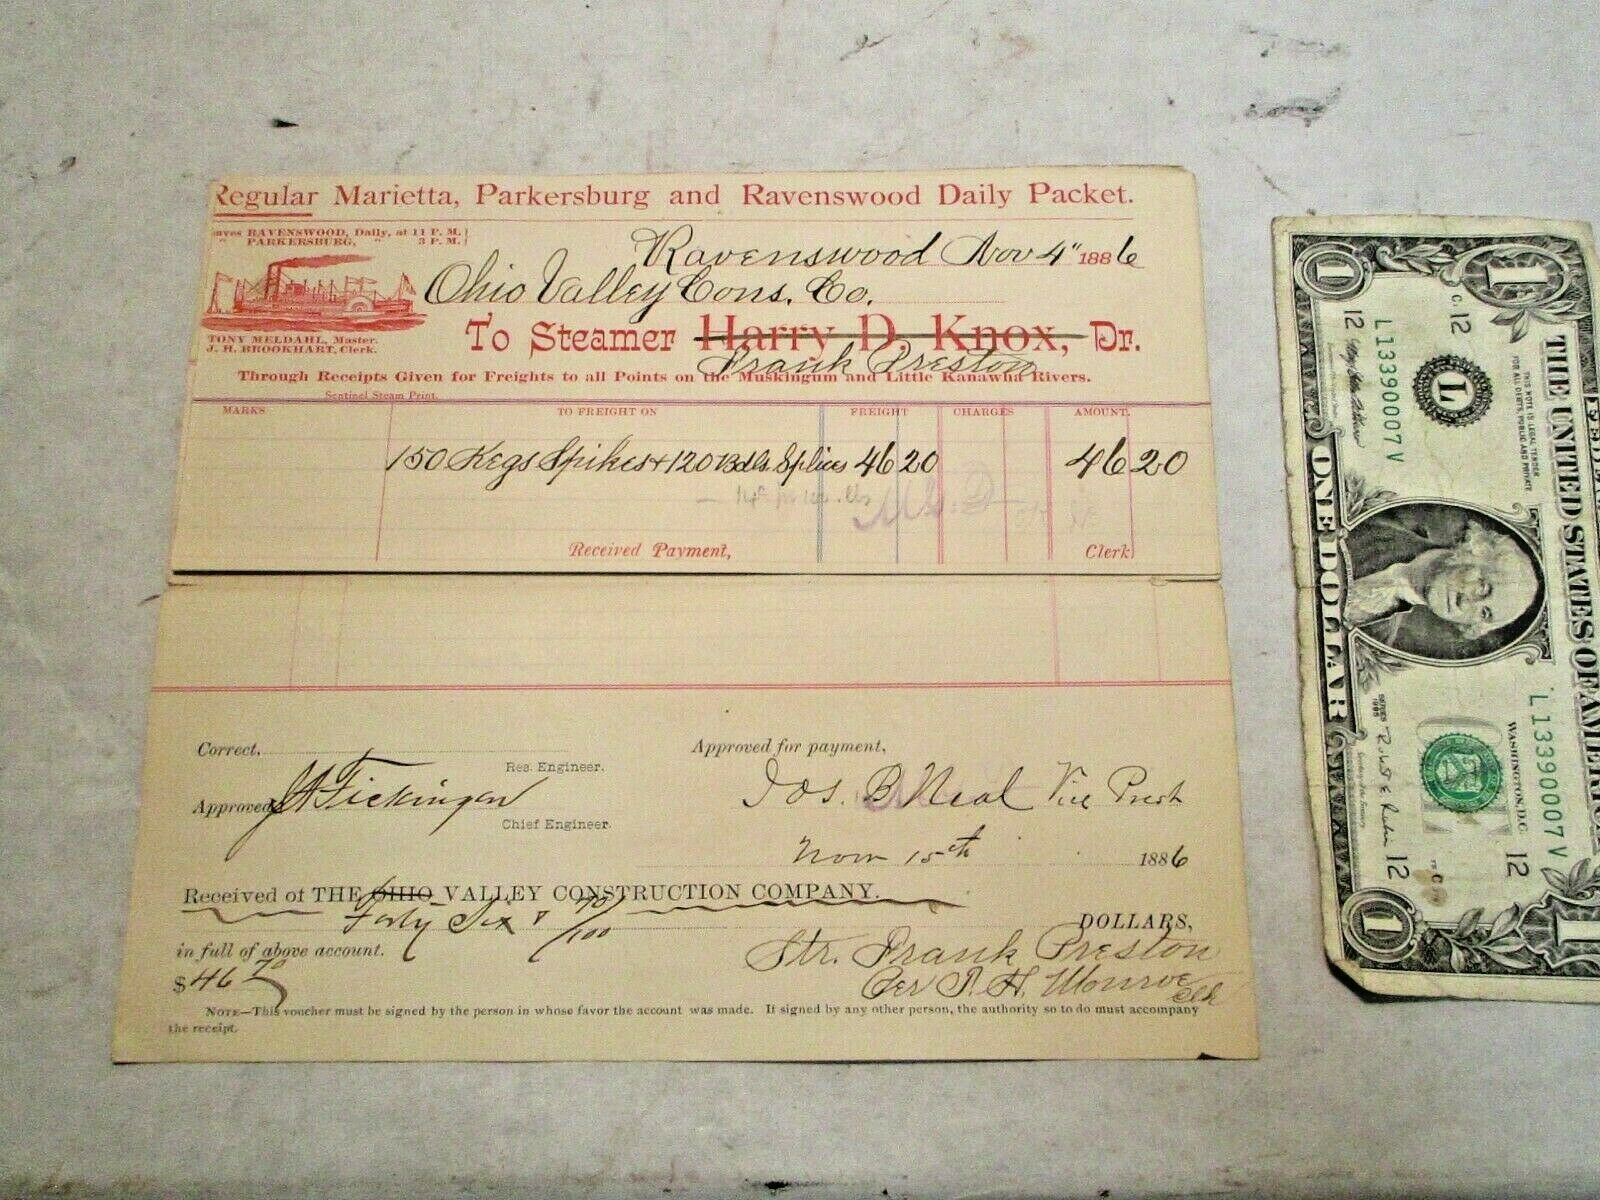 Regular Marietta, Parkersburg and Ravenswood Daily Packet.
RAVENSWOOD, Daily, at 11 P. M.
" PARKERSBURG, " 3 P. M.
Ravenswood Nov 4" 1886
Ohio Valley Cons. Co.
TONY MELDAHL, Master.
J. H. BROOKHART, Clerk.
To Steamer Harry D. Knox, Dr.
Frank Preston
Through Receipts Given for Freights to all Points on the Muskingum and Little Kanawha Rivers.
Sentinel Steam Print.
MARKS TO FREIGHT ON FREIGHT CHARGES AMOUNT.
150 Kegs Spikes + 120 Bdls. Splices 46 20 46 20
Received Payment, Clerk
Correct, Approved for payment,
Res. Engineer.
Approved Jos. B Neal Vice Prest
Chief Engineer.
Nov 15th 1886
Received of THE OHIO VALLEY CONSTRUCTION COMPANY.
Forty Six & /100 DOLLARS,
in full of above account. Str. Frank Preston
$46 Per P. H. Monroe Clk
NOTE—This voucher must be signed by the person in whose favor the account was made. If signed by any other person, the authority so to do must accompany
the receipt.
THE UNITED STATES OF AMERICA
THIS NOTE IS LEGAL TENDER
FOR ALL DEBTS, PUBLIC AND PRIVATE
L13390007V
12
L
WASHINGTON, D.C.
L13390007V
12
SERIES
ONE DOLLAR
1
1
1